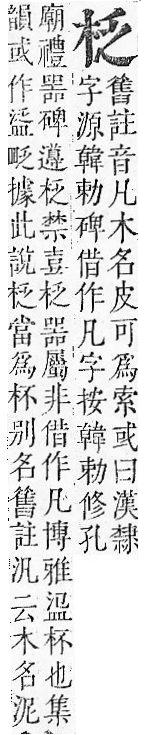 柉
舊註音凡木名皮可爲索或曰漢隸
字源韓勅碑借作凡字按韓勅修孔
廟禮器碑邊柉禁壴柉器屬非借作凡博雅盕杯也集
韻或作盕眨據此說柉當爲杯別名舊註汎云木名泥